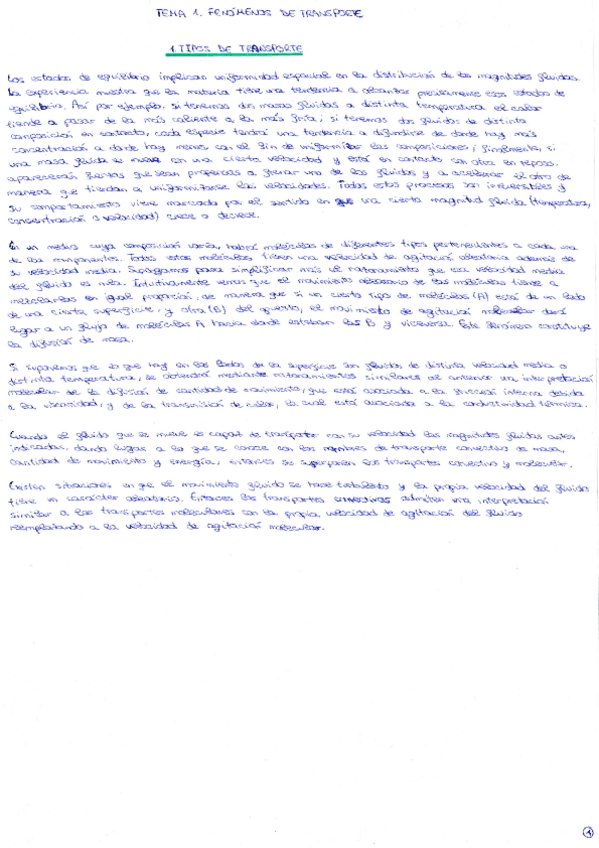 TEMA 1. FENÓMENOS DE TRANSPORTE
1. TIPOS DE TRANSPORTE
Los estados de equilibrio implican uniformidad espacial en la distribución de las magnitudes fluidas.
La experiencia muestra que la materia tiene una tendencia a alcanzar precisamente esos estados de
equilibrio. Así por ejemplo, si tenemos dos masas fluidas a distinta temperatura el calor
tiende a pasar de la más caliente a la más fría; si tenemos dos fluidos de distinta
composición en contacto, cada especie tendrá una tendencia a difundirse de donde hay más
concentración a donde hay menos con el fin de uniformizar las composiciones; finalmente, si
una masa fluida se mueve con una cierta velocidad y está en contacto con otra en reposo,
aparecerán fuerzas que sean propensas a frenar uno de los fluidos y a acelerar el otro de
manera que tiendan a uniformizarse las velocidades. Todos estos procesos son irreversibles y
su comportamiento viene marcado por el sentido en que una cierta magnitud fluida (temperatura,
concentración o velocidad) crece o decrece.
En un medio cuya composición varía, habrá moléculas de diferentes tipos pertenecientes a cada una
de los componentes. Todas estas moléculas tienen una velocidad de agitación aleatoria además de
su velocidad media. Supongamos para simplificar más el razonamiento que esa velocidad media
del fluido es nula. Intuitivamente vemos que el movimiento aleatorio de las moléculas tiende a
mezclarlas en igual proporción, de manera que si un cierto tipo de moléculas (A) está de un lado
de una cierta superficie, y otra (B) del opuesto, el movimiento de agitación molecular dará
lugar a un flujo de moléculas A hacia donde estaban las B y viceversa. Este fenómeno constituye
la difusión de masa.
Si suponemos que lo que hay en los lados de la superficie son fluidos de distinta velocidad media o
distinta temperatura, se obtendrá mediante razonamientos similares al anterior una interpretación
molecular de la difusión de cantidad de movimiento, que está asociada a la fricción interna debida
a la viscosidad, y de la transmisión de calor, la cual está asociada a la conductividad térmica.
Cuando el fluido que se mueve es capaz de transportar con su velocidad las magnitudes fluidas antes
indicadas, dando lugar a lo que se conoce con los nombres de transporte convectivo de masa,
cantidad de movimiento y energía, entonces se superponen los transportes convectivo y molecular.
Existen situaciones en que el movimiento fluido se hace turbulento y la propia velocidad del fluido
tiene un carácter aleatorio. Entonces los transportes convectivos admiten una interpretación
similar a los transportes moleculares con la propia velocidad de agitación del fluido
reemplazando a la velocidad de agitación molecular.
1